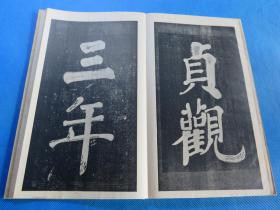 貞觀
三年